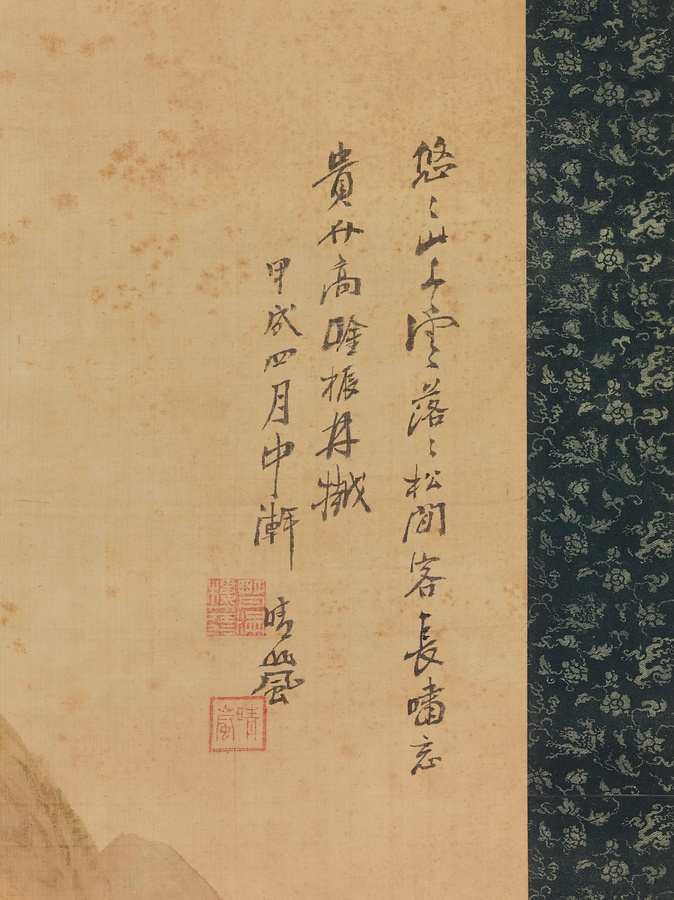 悠〻山上雲落〻松間客長嘯忘
貴高唫振林樾
甲戌四月中澣 晴嵐
晴嵐